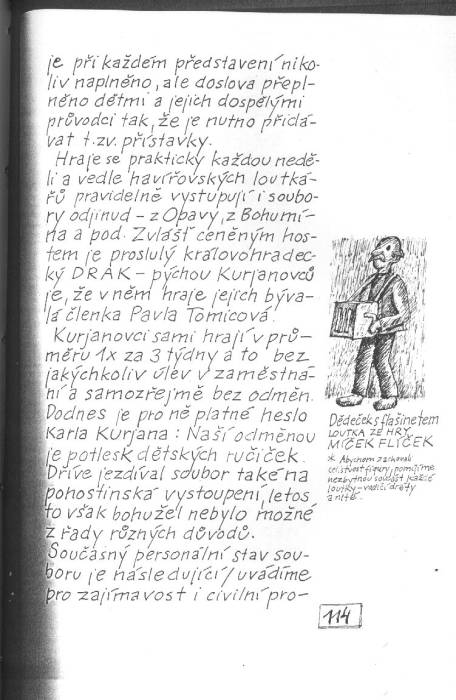 je při každém představení niko-
liv naplněno, ale doslova přepl-
něno dětmi a jejich dospělými
průvodci tak, že je nutno přidá-
vat t.zv. přístavky.
Hraje se prakticky každou nedě-
li a vedle havířovských loutká-
řů pravidelně vystupují i soubo-
ry odjinud – z Opavy, z Bohumí-
na a pod. Zvlášť ceněným hos-
tem je proslulý královohradec-
ký DRAK – pýchou Kurjanovců
je, že v něm hraje jejich býva-
lá členka Pavla Tomicová.
Kurjanovci sami hrají v prů-
měru 1x za 3 týdny a to bez
jakýchkoliv úlev v zaměstná-
ní a samozřejmě bez odměn.
Dodnes je pro ně platné heslo
Karla Kurjana: Naší odměnou
je potlesk dětských ručiček.
Dříve jezdíval soubor také na
pohostinská vystoupení, letos
to však bohužel nebylo možné
z řady různých důvodů.
Současný personální stav sou-
boru je následující/uvádíme
pro zajímavost i civilní pro-
Dědeček s flašinetem
LOUTKA ZE HRY
MÍČEK FLÍČEK
* Abychom zachovali
celistvost figury, pomíjíme
nezbytnou součást každé
loutky – vodící dráty
a nitě.
114